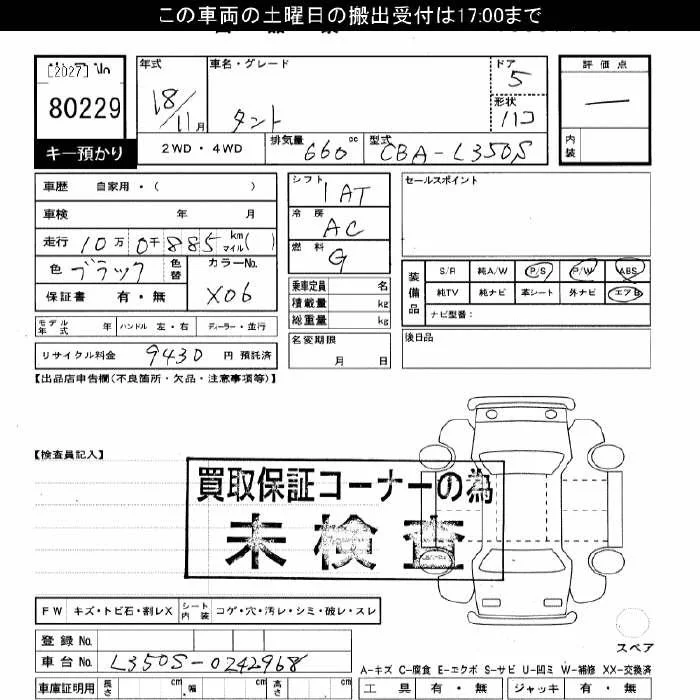 この車両の土曜日の搬出受付は17:00まで
[2027] No
80229
キー預かり
年式 18/11月
車名・グレード タント
ドア 5
形状 ハコ
評価点 ―
内装
2WD・4WD
排気量 660 cc
型式 CBA-L350S
車歴 自家用・( )
車検 年 月
走行 10万0千885 km マイル( )
色 ブラック 色替
カラーNo. X06
保証書 有・無
シフト 1AT
冷房 AC
燃料 G
乗車定員 名
積載量 kg
総重量 kg
名変期限 月 日
モデル年式 年 ハンドル 左・右 ディーラー・並行
リサイクル料金 9430 円 預託済
セールスポイント
装備品
S/R 純A/W P/S P/W ABS
純TV 純ナビ 革シート 外ナビ エアB
ナビ型番:
後日品
【出品店申告欄(不良箇所・欠品・注意事項等)】
【検査員記入】
買取保証コーナーの為
未検査
FW キズ・トビ石・割レX シート内装 コゲ・穴・汚レ・シミ・破レ・スレ
登録No.
車台No. L350S-0242968
車庫証明用 長さ cm 幅 cm 高さ cm
スペア
A-キズ C-腐食 E-エクボ S-サビ U-凹ミ W-補修 XX-交換済
工具 有・無 ジャッキ 有・無